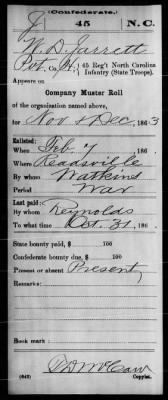 (Confederate.)
J 45 N.C.
W D Jarrett
Pvt, Co. H, 45 Reg't North Carolina
Infantry (State Troops).
Appears on
Company Muster Roll
of the organization named above,
for Nov & Dec, 1863
Enlisted:
When Feb 7, 186
Where Readsville
By whom Watkins
Period War
Last paid:
By whom Reynolds
To what time Oct. 31, 186
State bounty paid, $ 100
Confederate bounty due, $ 100
Present or absent Present
Remarks:
Book mark:
(642) Copyist.